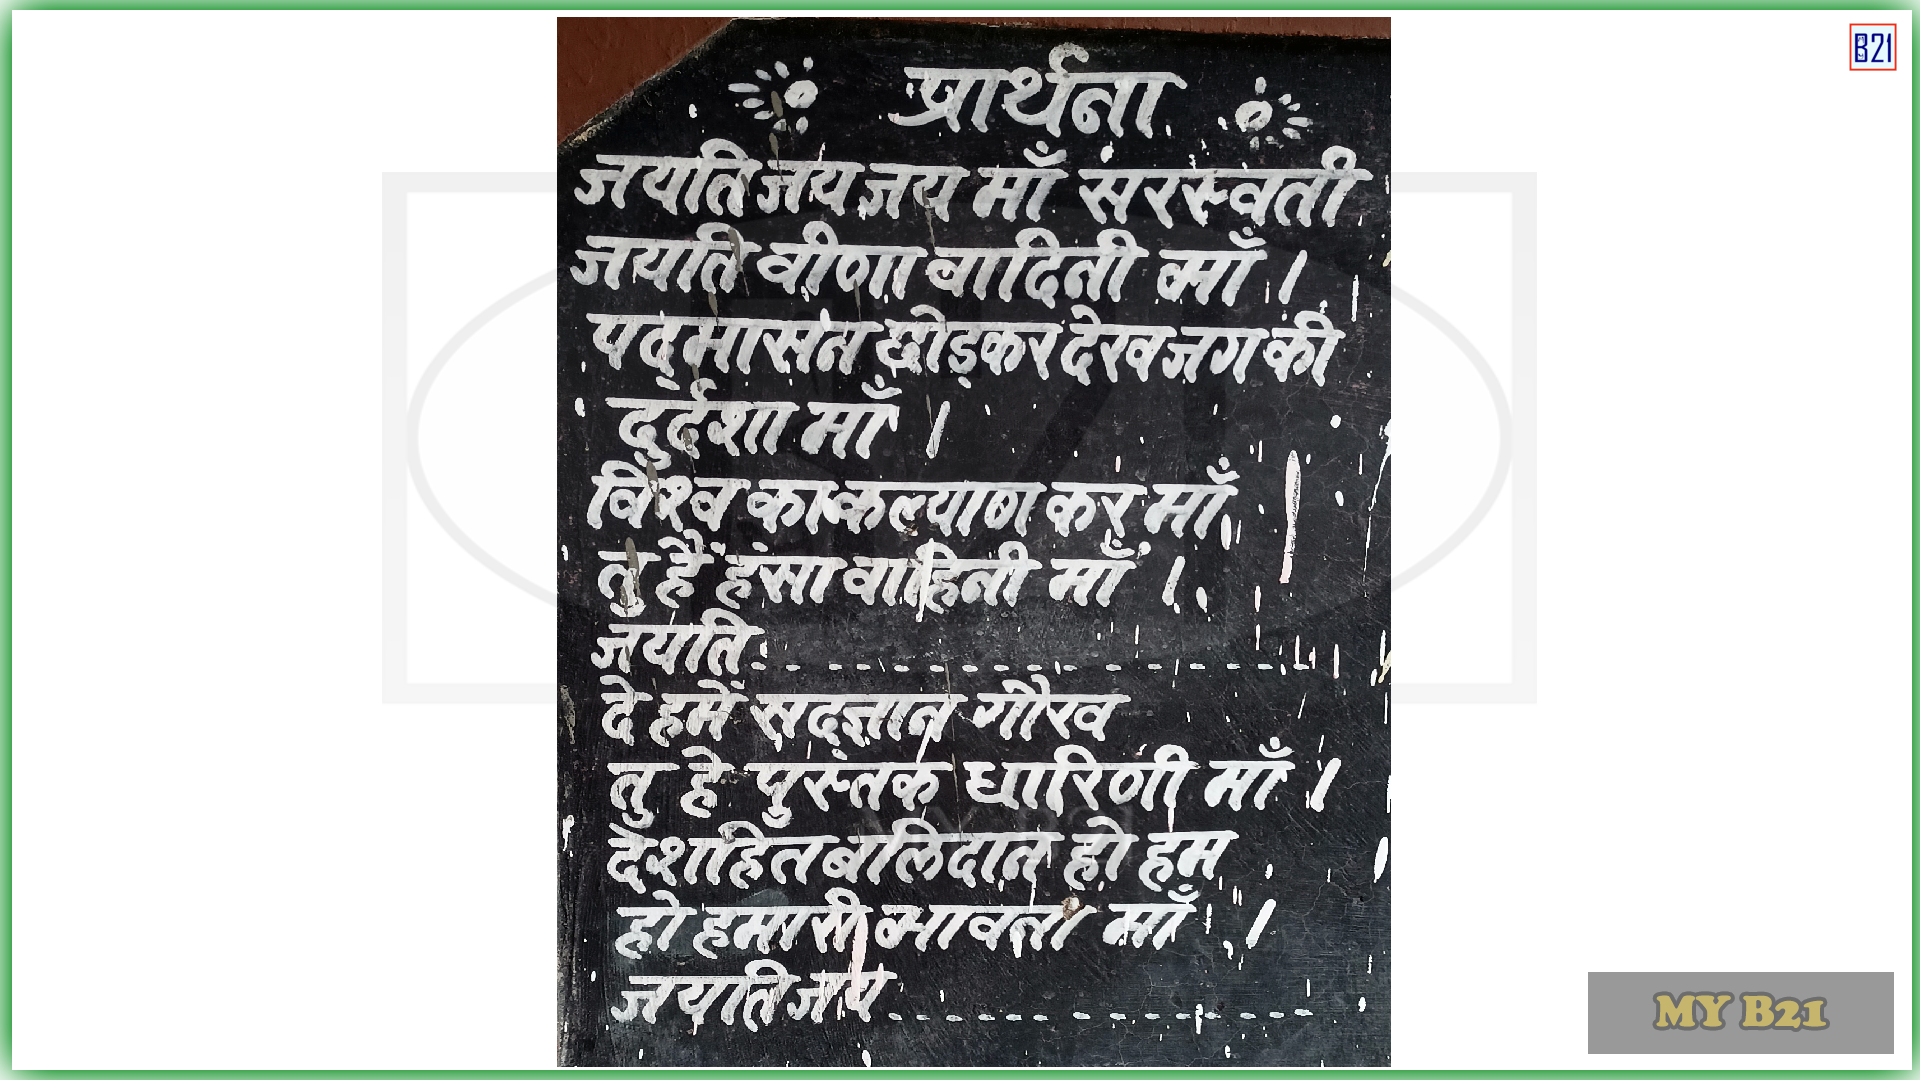 B21
प्रार्थना
जयति जय जय माँ सरस्वती
जयति वीणा वादिनी माँ ।
पद्मासन छोड़कर देख जग की
दुर्दशा माँ ।
विश्व का कल्याण कर माँ
तु है हंसा वाहिनी माँ ।
जयति - - - - - - - - - - - -
दे हमें सद्ज्ञान गौरव
तु हे पुस्तक धारिणी माँ ।
देशहित बलिदान हो हम
हो हमारी भावना माँ ।
जयति जय - - - - - - - - - - - -
MY B21